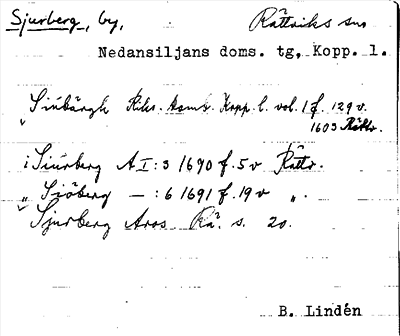 Sjurberg, by, Rättviks sn
Nedansiljans doms. tg, Kopp. l.
" Siubärgh Riks. doms. Kopp. l. vol. 1 f. 129 v.
1603 Rättv.
i Siurberg A I : 3 1670 f. 5 v Rättv.
" Siöberg — : 6 1691 f. 19 v " .
Sjurberg Aros Rä. s. 20.
B. Lindén